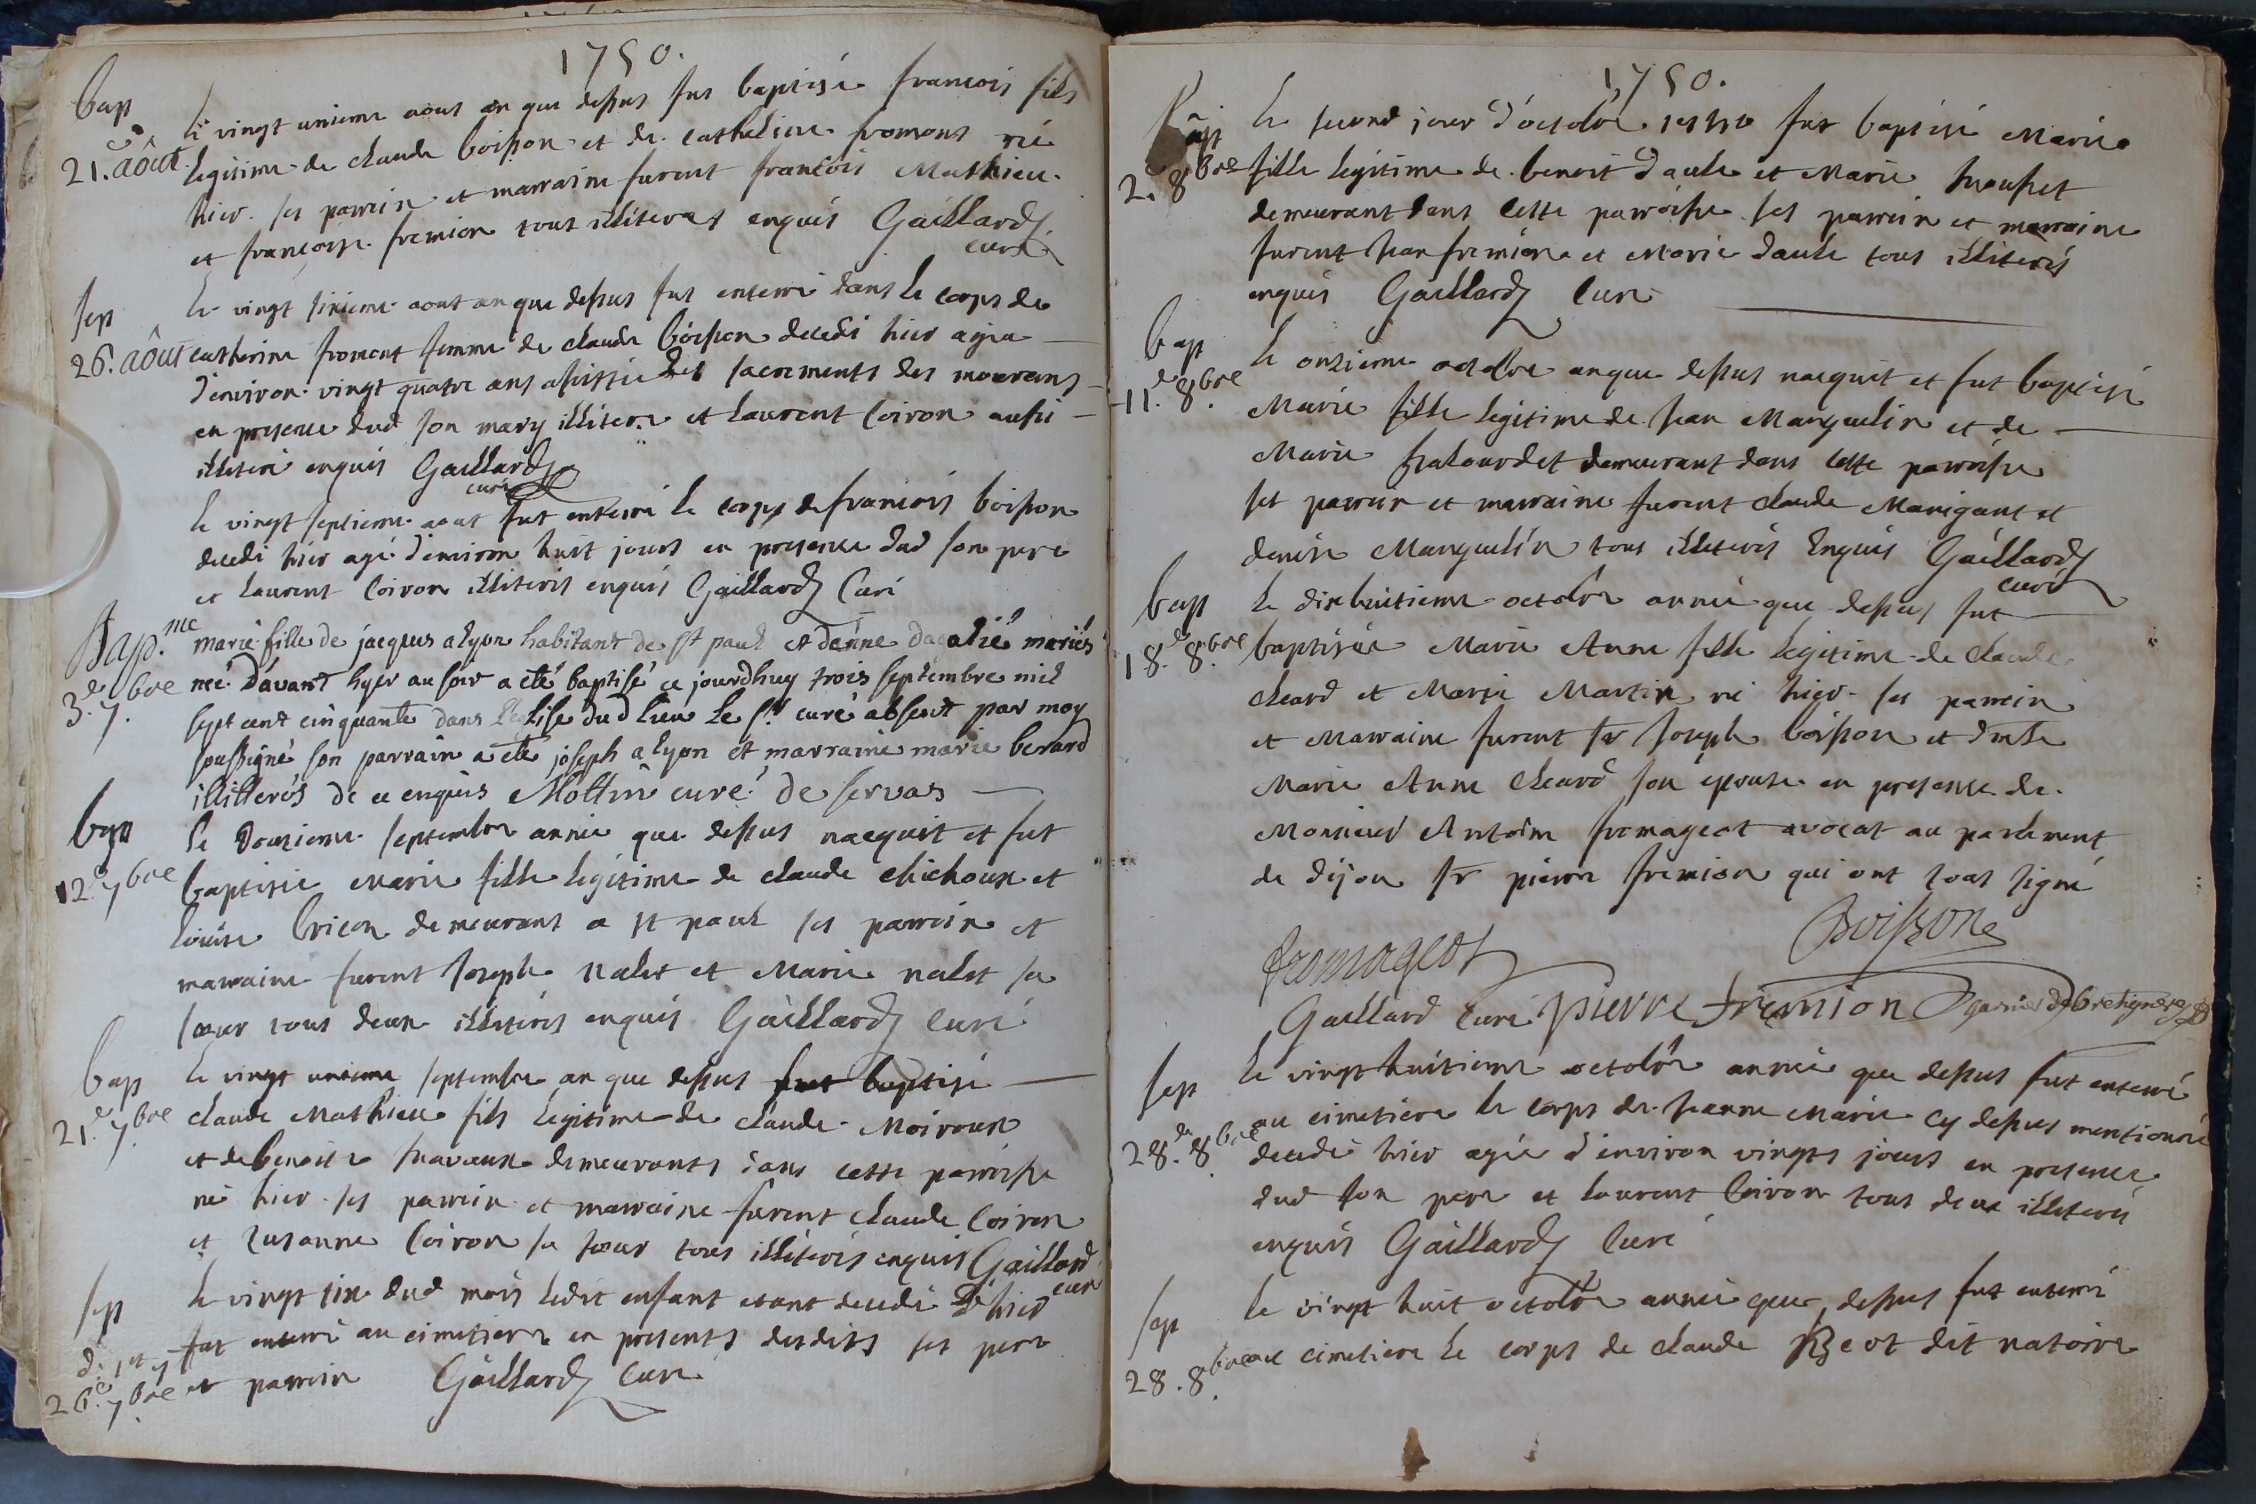 1750.
bap
21. août
Le vingt unieme aout an que dessus fut baptisé francois fils
legitime de claude boisson et de catheline fromont né
hier ses parrein et marraine furent francois Mathieu
et francoise fremion tous illiteres enquis Gaillard
curé
sep
26. août
Le vingt sixieme aout an que dessus fut enterré dans le corps de
catherine fromont femme de claude boisson decedé hier agée
d'environ vingt quatre ans assistée des sacrements des mourans
en presence dud son mary illitere et Laurent Coiron aussi
illiteré enquis Gaillard
curé
le vingt septieme aout fut enterré le corps de francois boisson
decedé hier agé d'environ huit jours en presence dud son pere
et Laurent Coiron illiterés enquis Gaillard Curé
Bap.me
3.e 7.bre
marie fille de jacques alyon habitant de st paul et danne mariés
née d'avant hyer au soir a eté baptisé ce jourdhuy trois septembre mil
sept cent cinquante dans l'eglise dud lieu le sr curé absent par moy
soussigné son parrain a eté joseph alyon et marraine marie berard
illitterés de ce enquis Mottin curé de servas
bap
12.e 7bre
Le douzieme septembre année que dessus nacquit et fut
baptisée Marie fille legitime de claude chichoux et
Louise bricon demeurans a st paul ses parrein et
marraine furent Joseph nalet et Marie nalet sa
soeur tous deux illiterés enquis Gaillard Curé
bap
21.e 7.bre
Le vingt unieme septembre an que dessus fut baptisé
claude Mathieu fils legitime de claude Moiroux
et de benoite demeurants dans cette parroisse
né hier ses parrein et marraine furent claude Coiron
et Susanne Coiron sa soeur tous illiterés enquis Gaillard
curé
sep
d. 1et 7
26.e 7.bre
Le vingt six dud mois ledit enfant etant decedé hier
fut enterré au cimetiere en presents desdits ses pere
et parrein Gaillard Curé
1750.
Bap
2.e 8bre
Le second jour d'octobre fut baptisé Marie
fille legitime de benoit daule et Marie
demeurant dans cette parroisse ses parrein et marraine
furent Jean fremion et Marie daule tous illiterés
enquis Gaillard Curé
bap
11.e 8.bre
Le onzieme octobre an que dessus nacquit et fut baptisé
Marie fille legitime de Jean Manguelin et de
Marie demeurant dans cette parroisse
ses parrein et marraine furent claude Manigant et
denise Manguelin tous illiterés Enquis Gaillard
curé
bap
18.e 8.bre
Le dixhuitieme octobre année que dessus fut
baptisée Marie Anne fille legitime de claude
cheard et Marie Martin né hier ses parrein
et Marraine furent sr Joseph boisson et dmlle
Marie Anne cheard son epouse en presence de
Monsieur Antoine fromageot avocat au parlement
de dijon sr pierre fremion qui ont tous signé
Boisson
fromageot
Gaillard Curé pierre fremion
sep
28.de 8bre
Le vingt huitieme octobre année que dessus fut enterré
au cimetiere le corps de Jeanne Marie cy dessus mentionné
decedé hier agée d'environ vingts jours en presence
dud son pere et Laurent Coiron tous deux illiterés
enquis Gaillard Curé
sep
28.8.bre
Le vingt huit octobre année que dessus fut enterré
au cimetiere le corps de claude dit natoire